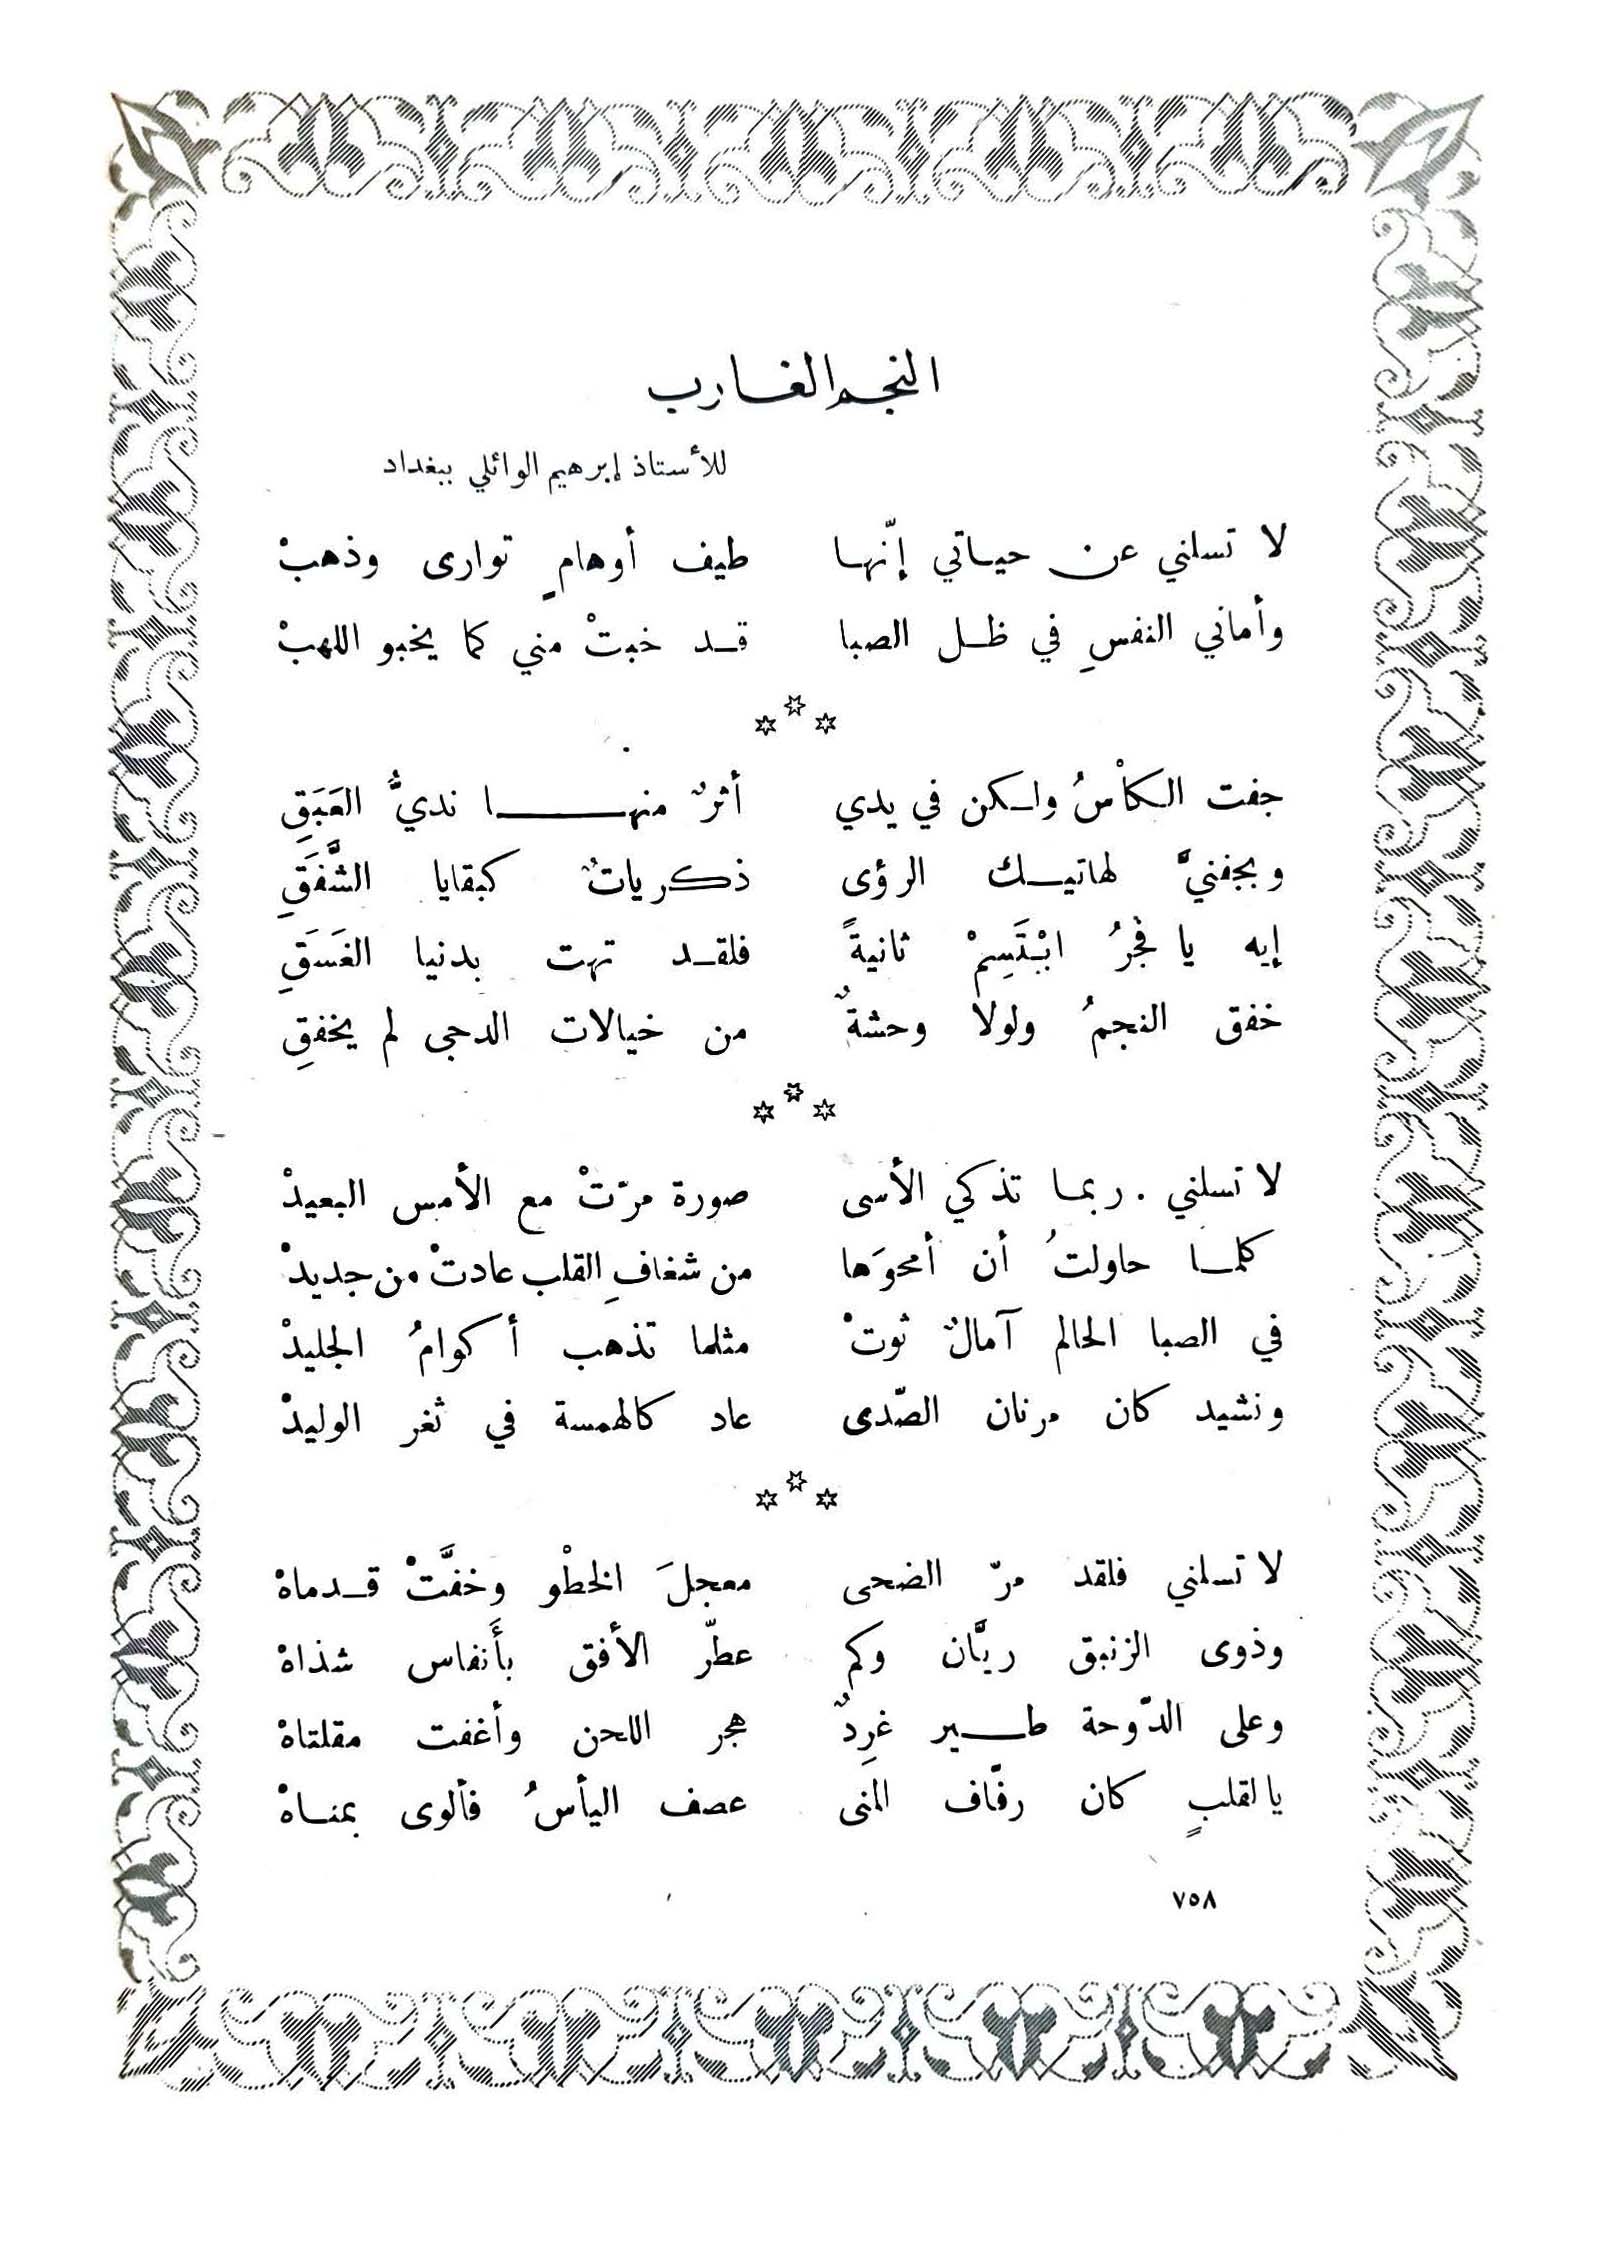 النجم الغارب
للأستاذ إبرهيم الوائلي ببغداد
لا تسلني عن حياتي إنّها طيف أوهامٍ توارى وذهبْ
وأماني النفسِ في ظل الصبا قد خبتْ مني كما يخبو اللهبْ
***
جفت الكأسُ ولكن في يدي أثرٌ منها نديُّ العَبَقِ
وبجفنيَّ لهاتيك الرؤى ذكرياتٌ كبقايا الشَّفَقِ
إيه يا فجرُ ابْتَسِمْ ثانيةً فلقد تهت بدنيا الغَسَقِ
خفق النجمُ ولولا وحشةٌ من خيالات الدجى لم يخفقِ
***
لا تسلني . ربما تذكي الأسى صورة مرّتْ مع الأمس البعيدْ
كلما حاولتُ أن أمحوَها من شغافِ القلب عادتْ من جديدْ
في الصبا الحالم آمالٌ ثوتْ مثلما تذهب أكوامُ الجليدْ
ونشيد كان مرنان الصّدى عاد كالهمسة في ثغر الوليدْ
***
لا تسلني فلقد مرّ الضحى معجلَ الخطْو وخفَّتْ قدماهْ
وذوى الزنبق ريَّان وكم عطّر الأفق بأَنفاس شذاهْ
وعلى الدّوحة طير غرِدٌ هجر اللحن وأغفت مقلتاهْ
يالقلبٍ كان رفّاف المنى عصف اليأسُ فألوى بمناهْ
٧٥٨